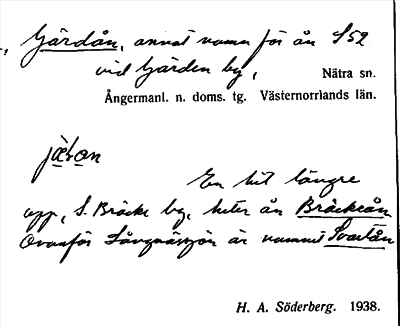 Gärdån, annat namn för ån S52
vid Gärden by,
Nätra sn.
Ångermanl. n. doms. tg. Västernorrlands län.
En bit längre
upp, S. Bräcke by, heter ån Bräckeån
Ovanför Långnässjön är namnet Svartån
H. A. Söderberg. 1938.